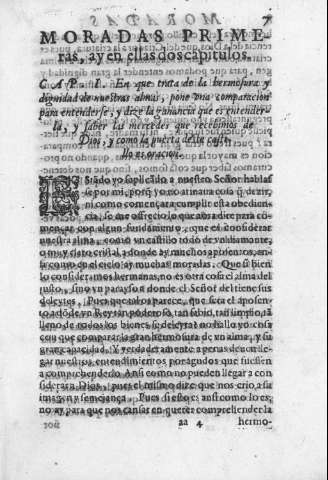 7
MORADAS PRIME-
ras, ay en ellas dos capitulos.
CAP. I. En que trata de la hermosura y
dignidad de nuestras almas, pone una comparacion
para entenderse, y dize la ganancia que es entender
la, y saber las mercedes que recebimos de
Dios, y como la puerta deste casti
llo es oracion.
EStãdo yo suplicãdo a nuestro Señor hablas
se por mi, porq̃ yo no atinaua cosa q̃ dezir,
ni como començar a cumplir esta obedien-
cia, se me ofrecio lo que aora dire para co-
mençar con algun fundamento, que es cõsiderar
nuestra alma, como vn castillo todo de vn diamante,
o muy claro cristal, a donde ay muchos aposentos, an-
si como en el cielo ay muchas moradas. Que si bien
lo consideramos hermanas, no es otra cosa el alma del
justo, sino vn parayso a donde el Señor dize tiene sus
deleytes. Pues que tal os parece, que sera el aposen-
to adõde vn Rey tan poderoso, tan sabio, tan limpio, tã
lleno de todos los bienes se deleyta? no hallo yo cosa
con que comparar la gran hermosura de vn alma, y su
gran capacidad. Y verdaderamente apenas deuen lle-
gar nuestros entendimientos por agudos que fuessen
a comprehenderlo. Ansi como no pueden llegar a con
siderar a Dios, pues el mismo dize que nos crio a su
imagen y semejança. Pues si esto es ansi como lo es,
no ay para que nos cansar en querer comprehender la
aa 4 hermo-